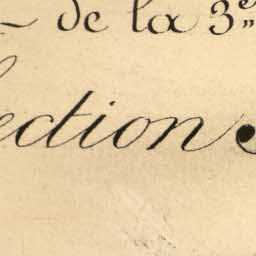 de la 3e
ection